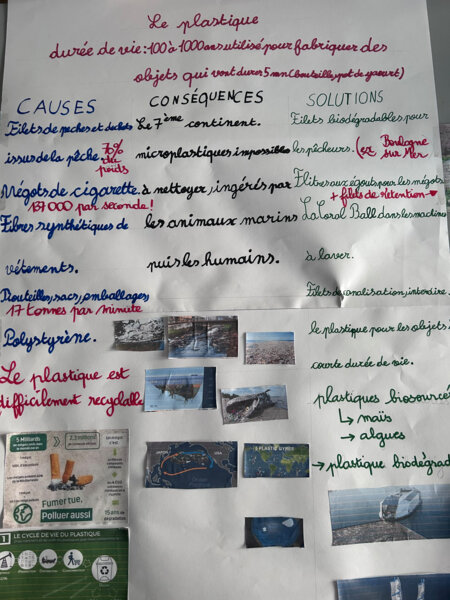 Le plastique
durée de vie: 100 à 1000 ans utilisé pour fabriquer des
objets qui vont durer 5 mn (bouteille, pot de yaourt)
CAUSES
Filets de pêches et déchets
issus de la pêche 70%
du
poids
Mégots de cigarette.
137000 par seconde!
Fibres synthétiques de
vêtements.
Bouteilles, sacs, emballages,
17 tonnes par minute
Polystyrène.
Le plastique est
difficilement recyclable
CONSÉQUENCES
Le 7ème continent.
microplastiques impossible
à nettoyer, ingérés par
les animaux marins
puis les humains.
SOLUTIONS
Filets biodégradables pour
les pêcheurs. (ex Boulogne
sur Mer
Filtres aux égouts pour les mégots
+ filets de rétention
La Coral Ball dans les machines
à laver.
Filets de canalisation, interdire
le plastique pour les objets
courte durée de vie.
plastiques biosourcé
↳ maïs
↳ algues
→ plastique biodégrad
5 Milliards
2,3 millions
Fumer tue,
Polluer aussi
15 ans de
1 LE CYCLE DE VIE DU PLASTIQUE
JAPON
USA
5 PLASTIC GYRES